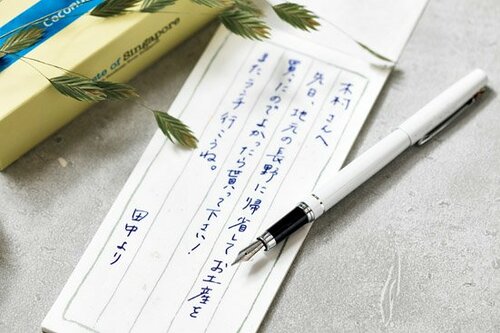 木村さんへ
先日、地元の長野に帰省してお土産を
買ったので上かったら貰って下さい!
またランチ行こうね。
田中より
Coconut
Singapore